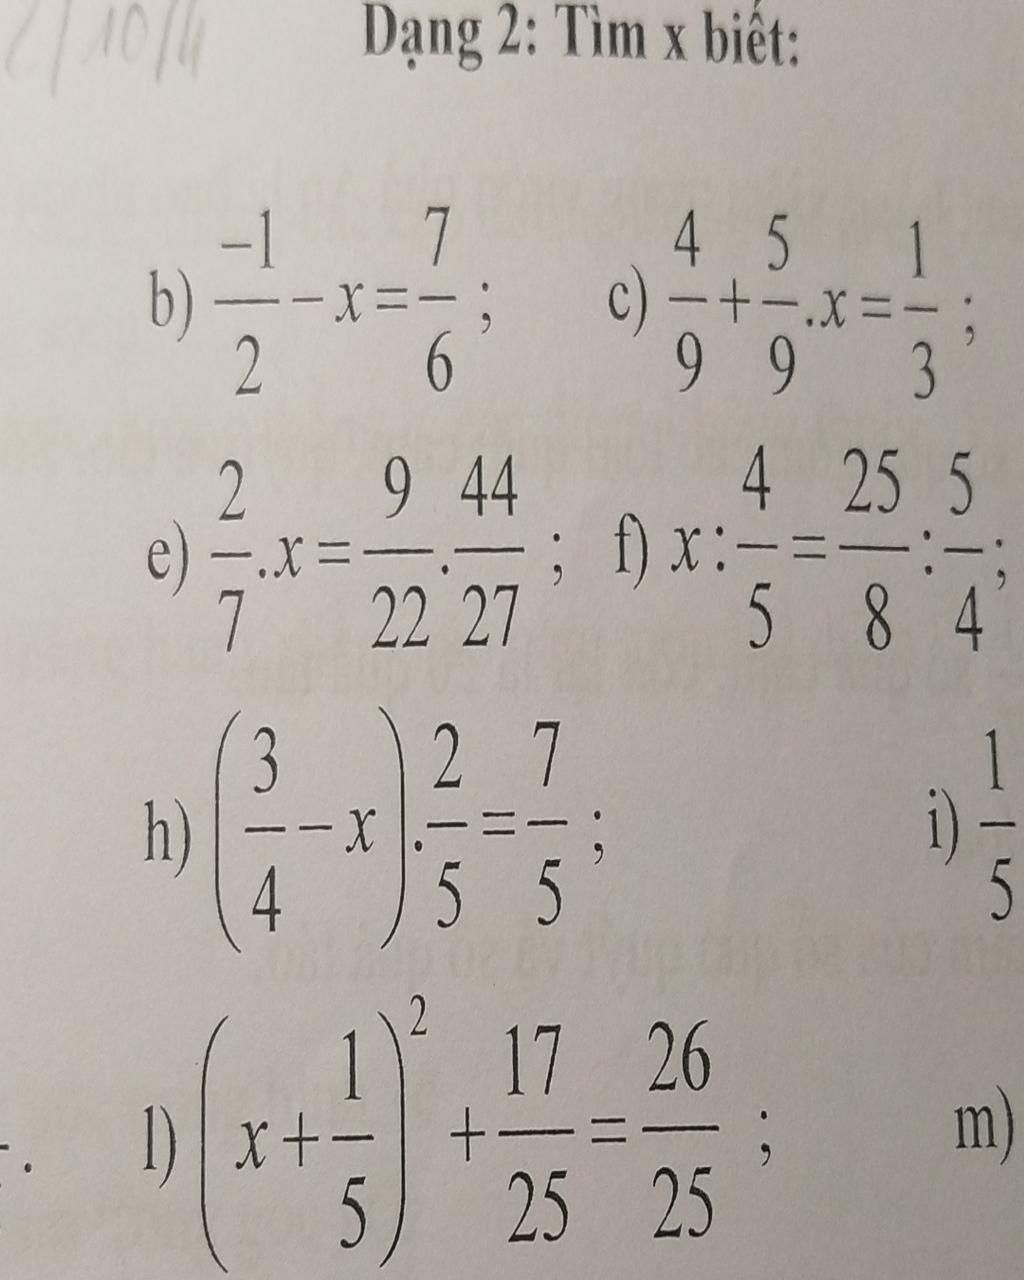 Dạng 2: Tìm x biết:
b) \frac{-1}{2} - x = \frac{7}{6} ; c) \frac{4}{9} + \frac{5}{9} . x = \frac{1}{3} ;
e) \frac{2}{7} . x = \frac{9}{22} . \frac{44}{27} ; f) x : \frac{4}{5} = \frac{25}{8} : \frac{5}{4} ;
h) \left( \frac{3}{4} - x \right) . \frac{2}{5} = \frac{7}{5} ; i) \frac{1}{5}
l) \left( x + \frac{1}{5} \right)^2 + \frac{17}{25} = \frac{26}{25} ; m)